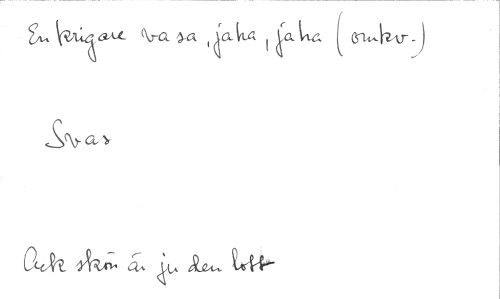 En krigare va sa, jaha, jaha (omkv.)
Svas
Ack skön är ju den lott